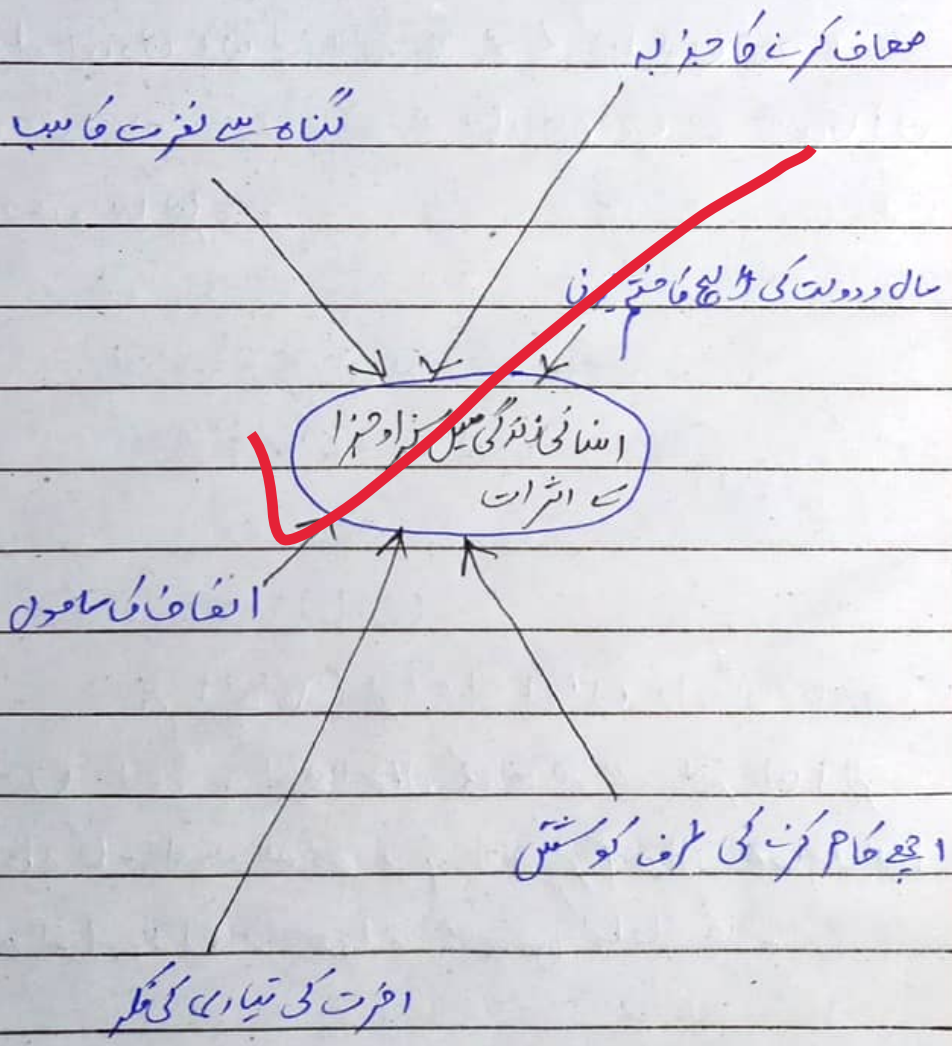 معاف کرنے کا جذبہ
گناہ سے نفرت کا سبب
مال و دولت کی لالچ کا ختم ہونی
انسانی زندگی میں سزا و جزا
کے اثرات
انصاف کا ماحول
اچھے کام کرنے کی طرف کوشش
اخرت کی تیاری کی فکر